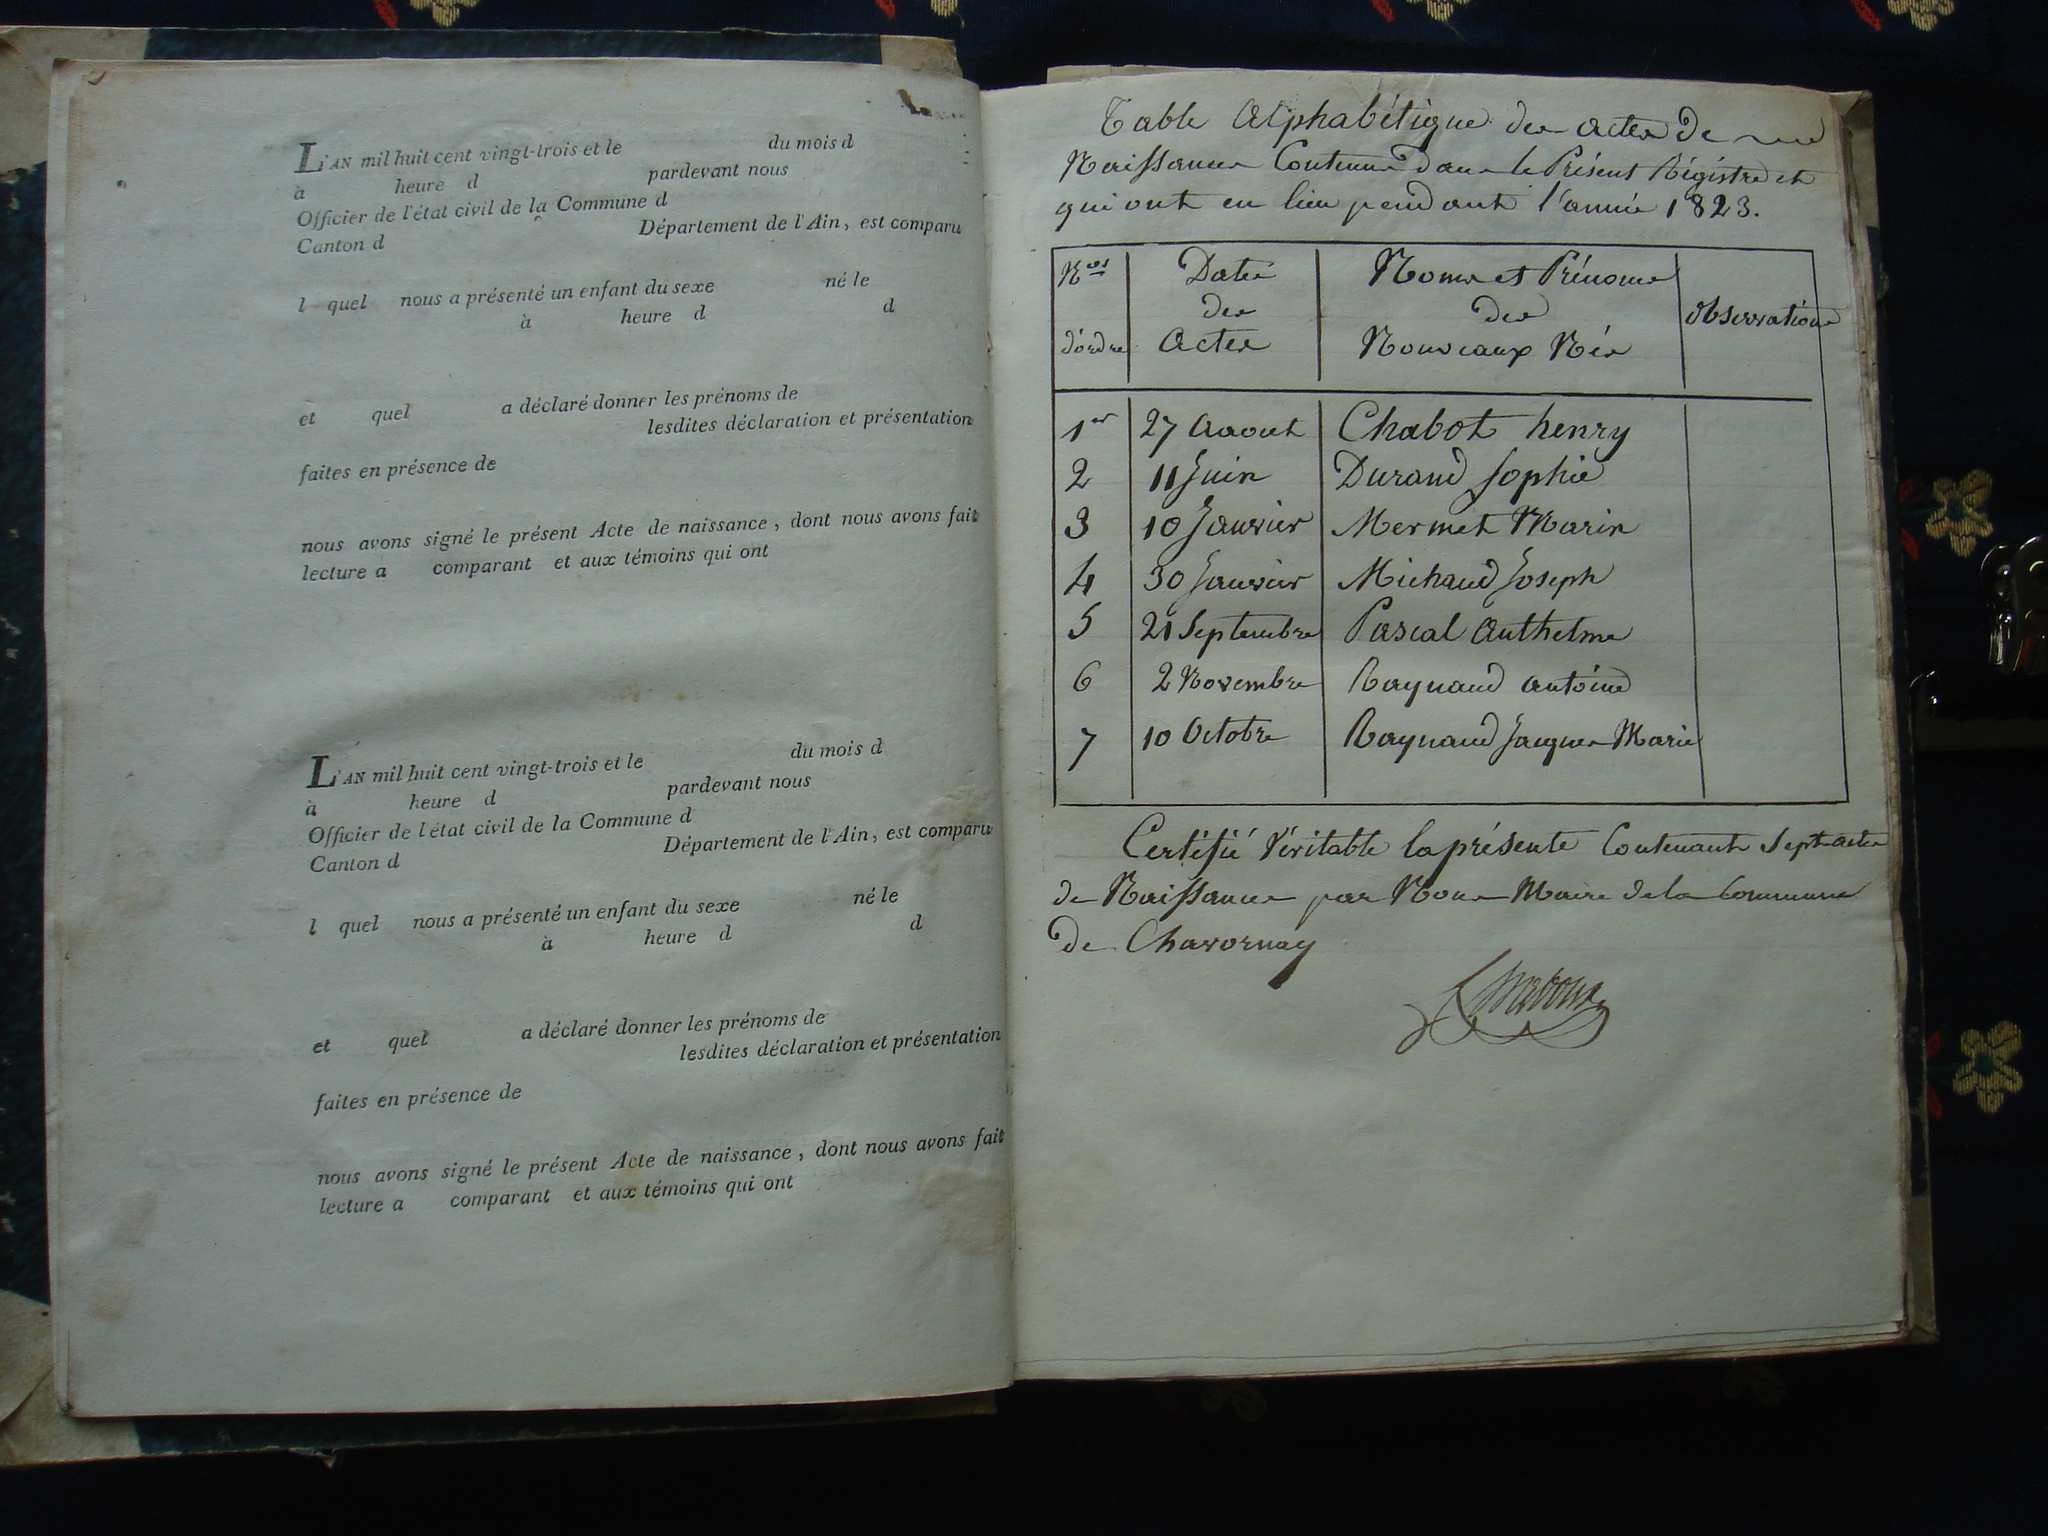 L'AN mil huit cent vingt-trois et le du mois d
à heure d pardevant nous
Officier de l'état civil de la Commune d
Canton d Département de l'Ain, est comparu
l quel nous a présenté un enfant du sexe né le
à heure d d
et quel a déclaré donner les prénoms de
lesdites déclaration et présentation
faites en présence de
nous avons signé le présent Acte de naissance, dont nous avons fait
lecture a comparant et aux témoins qui ont
L'AN mil huit cent vingt-trois et le du mois d
à heure d pardevant nous
Officier de l'état civil de la Commune d
Canton d Département de l'Ain, est comparu
l quel nous a présenté un enfant du sexe né le
à heure d d
et quel a déclaré donner les prénoms de
lesdites déclaration et présentation
faites en présence de
nous avons signé le présent Acte de naissance, dont nous avons fait
lecture a comparant et aux témoins qui ont
Table Alphabétique des Actes de
Naissances Contenues dans le Présent Régistre et
qui ont eu lieu pendant l'année 1823.
Nos d'ordre Date des Actes Noms et Prénoms des Nouveaux Nés Observations
1er 27 Aaout Chabot henry
2 11 Juin Durand Sophie
3 10 Janvier Mermet Marin
4 30 Janvier Michaud Joseph
5 21 Septembre Pascal Anthelme
6 2 Novembre Raynaud antoine
7 10 Octobre Raynaud Jacques Marie
Certifié Véritable la présente Contenant Sept actes
de Naissances par Nous Maire de la Commune
de Chavornay